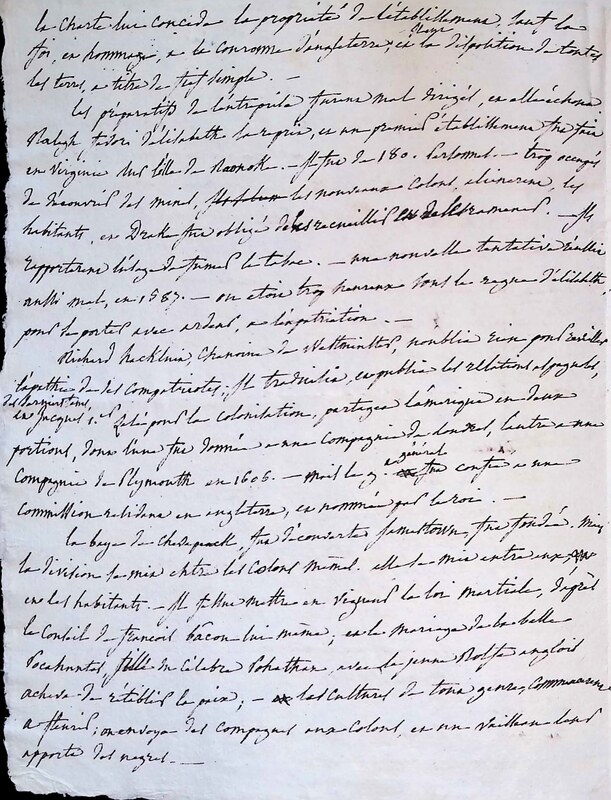 la Charte lui concede la propriété de l'établissement, sauf la
foi, en hommage, a la couronne d'angleterre, et la disposition de toutes
les terres, a titre de fief simple. —
les préparatifs de l'entreprise furent mal dirigés, et elle échoua
Ralegh, favori d'élisabeth la reprit, et un premier établissement fut fait
en Virginie dans l'isle de Raonok. — Il fut de 180. personnes. — trop occupés
de découvrir des mines, les nouveaux Colons, alienerent, les
habitants, et Drake fut obligé de les recueillir et de les ramener. — Ils
rapporterent l'usage de fumer le tabac. — une nouvelle tentative réussit
aussi mal, en 1587. — on etoit trop heureux sous le regne d'élisabeth,
pour se porter avec ardeur, a l'expatriation. —
Richard hackluit, Chanoine de Westminster, n'oublia rien pour
l'apathie de ses compatriotes, Il traduisit, et publia les relations espagnoles,
et Jacques 1.er zelé pour la colonisation, partagea l'amerique en deux
portions, dont l'une fut donnée a une Compagnie de Londres, l'autre a une
Compagnie de Plymouth en 1606. — mais le g. général fut confié a une
Commission residant en angleterre, et nommée par le roi. —
la baye de chesapeack fut découverte Jamestown fut fondé. Mais
la division se mit entre les Colons mêmes. elle se mit entre eux,
et les habitants. — Il fallut mettre en vigueur la loi martiale, d'après
le Conseil de francois bacon lui même; et le mariage de la belle
Pocahuntas fille du Célebre Pohathan, avec le jeune Rolfe anglois
acheva de rétablir la paix; — les cultures de tout genre, commencerent
a fleurir; on envoya des Compagnes aux Colons, et un vaisseau
apporta des negres. —